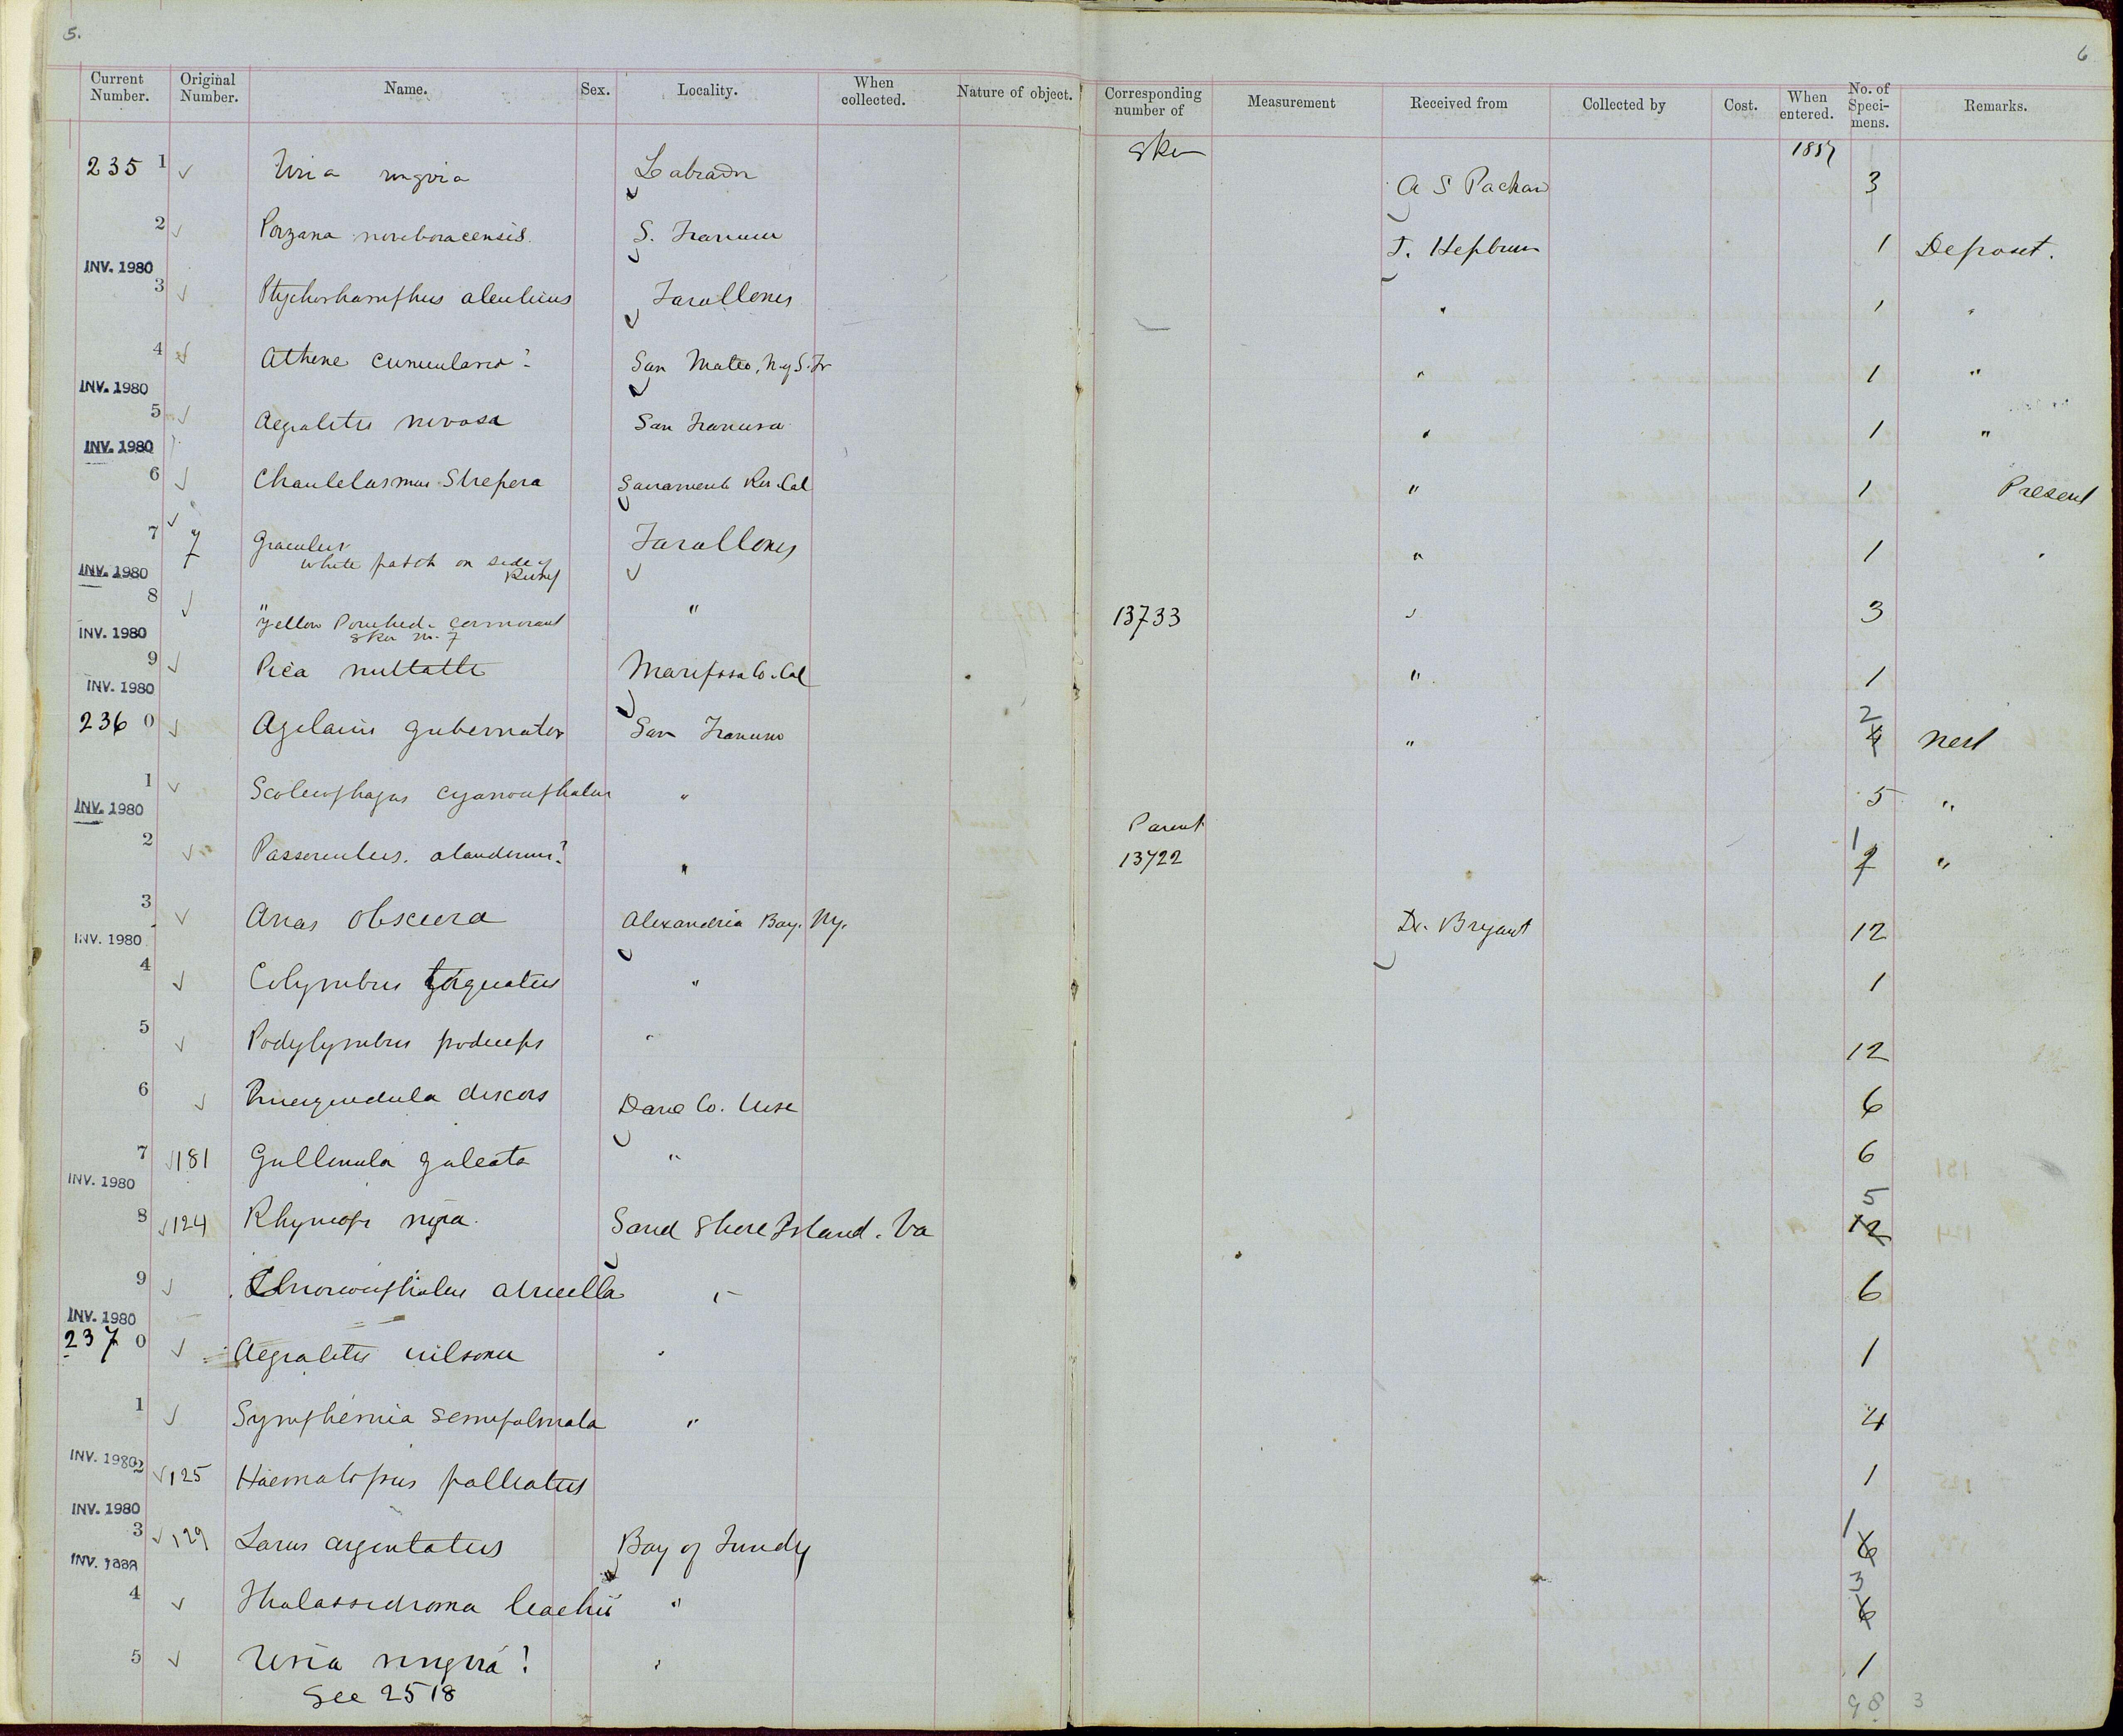 5. 6
Current Number. Original Number. Name. Sex. Locality. When collected. Nature of object. Corresponding number of Measurement Received from Collected by Cost. When entered. No. of Specimens. Remarks.
1857
235 1 ✓ Uria ringvia Labrador A S Packard 3
2 ✓ Porzana noveboracensis. S. Francisco J. Hepburn 1 Deposit.
INV. 1980
3 ✓ Ptychorhamphus aleuticus Farallones " 1 "
4 ✓ Athene cunicularia? San Mateo, N. of S. Fr " 1 "
INV. 1980
5 ✓ Aegialitis nivosa San Francisco " 1 "
INV. 1980
6 ✓ Chaulelasmus Strepera Sacramento Riv. Cal " 1 Present
7 ✓ 7 Graculus Farallones " 1 "
white patch on side of Rump
INV. 1980
8 ✓ " " 13733 " 3
yellow Pouched. cormorant
INV. 1980
9 ✓ Pica nuttalli Mariposa Co. Cal " 1
INV. 1980
236 0 ✓ Agelaius gubernator San Francisco " 2 4 Nest
1 ✓ Scolecophagus cyanocephalus " 5 "
INV. 1980
Parent
2 ✓ Passerculus. alaudinus? " 13722 1 "
3 ✓ Anas obscura Alexandria Bay. Ny. Dr. Bryant 12
INV. 1980
4 ✓ Colymbus torquatus " 1
5 ✓ Podylymbus podiceps " 12
6 ✓ discors Dane Co. Wisc 6
7 ✓ 181 Gallinula galeata " 6
INV. 1980
8 ✓ 124 Rhynops nigra. Sand Shore Island. Va 5 12
9 ✓ Chroicocephalus atricilla " 6
INV. 1980
237 0 ✓ Aegialitis wilsonia " 1
1 ✓ Symphemia semipalmata " 4
INV. 1980
2 ✓ 125 Haematopus palliatus 1
INV. 1980
3 ✓ 129 Larus argentatus Bay of Fundy 1 6
INV. 1980
4 ✓ Thalassidroma leachii " 3 6
5 ✓ Uria ringvia! " 1
See 2518
98 3